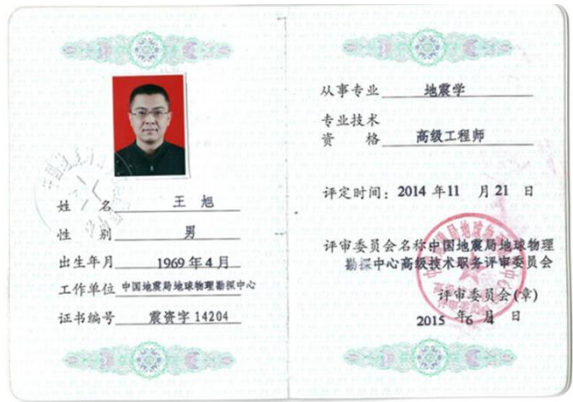 姓名 王旭
性别 男
出生年月 1969年4月
工作单位 中国地震局地球物理勘探中心
证书编号 震资字14204
从事专业 地震学
专业技术
资格 高级工程师
评定时间: 2014 年 11 月 21 日
评审委员会名称 中国地震局地球物理
勘探中心高级技术职务评审委员会
评审委员会(章)
2015 年 6 4 日